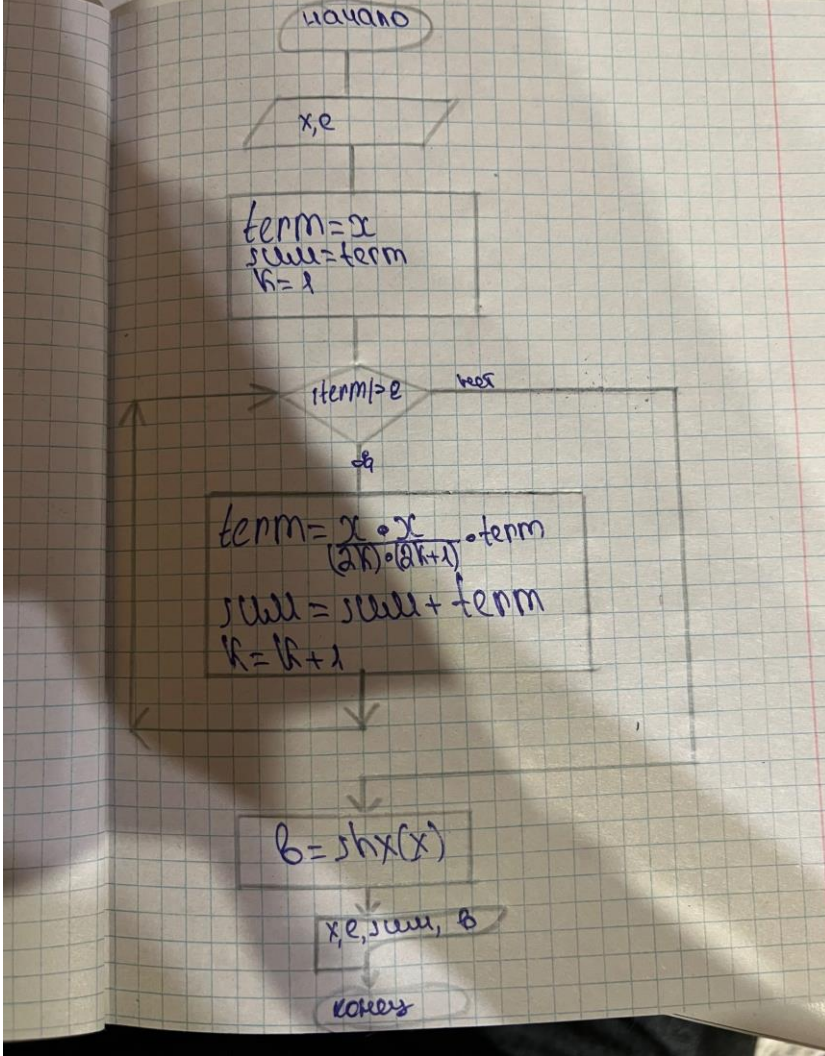 начало
x,e
term=x
sum=term
k=1
|term|>e
нет
да
term= x • x / (2k)•(2k+1) • term
sum = sum + term
k=k+1
b=shx(x)
x,e,sum, b
конец